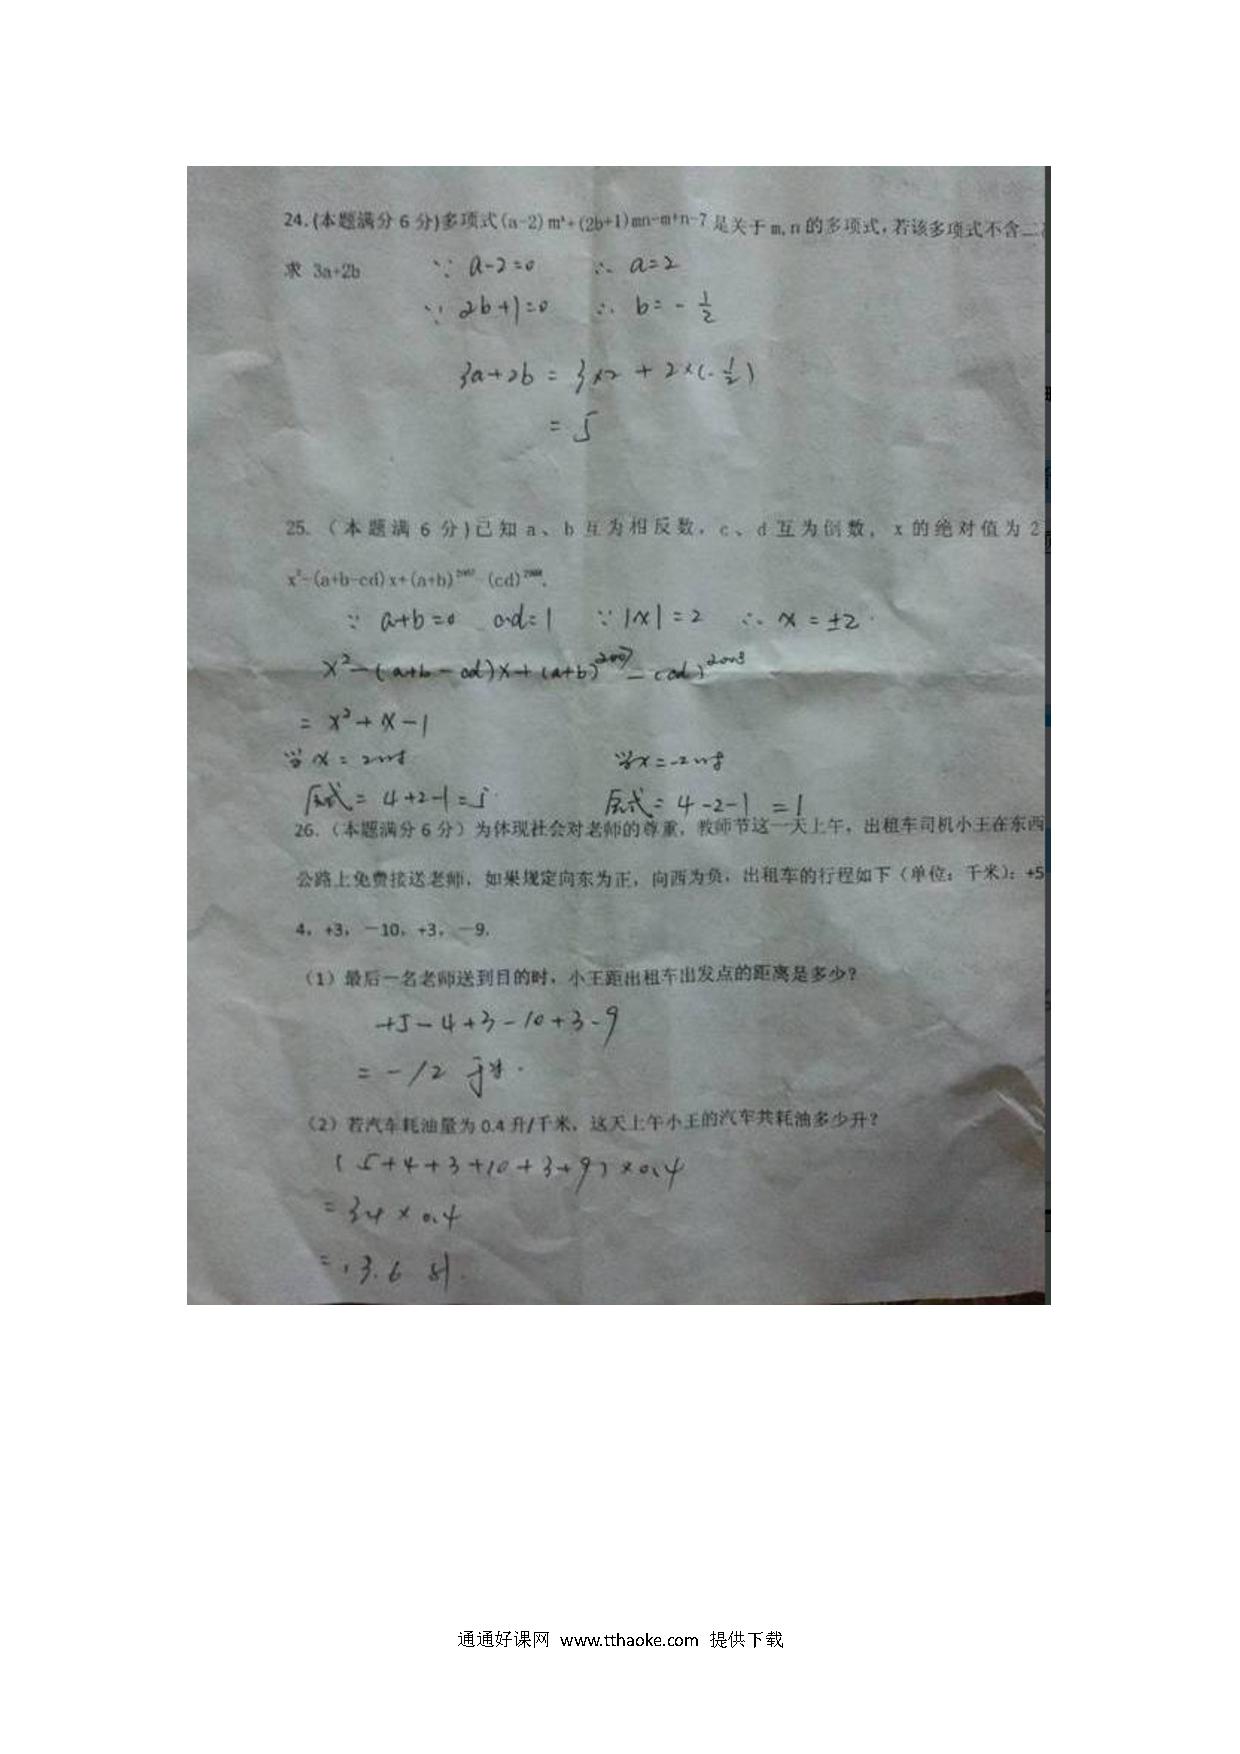 24.(本题满分6分)多项式(a-2)m²+(2b+1)mn-m+n-7是关于m,n的多项式,若该多项式不含二
求 3a+2b ∵ a-2=0 ∴ a=2
∵ 2b+1=0 ∴ b=-1/2
3a+2b = 3×2 + 2×(-1/2)
= 5
25.(本题满6分)已知a、b互为相反数,c、d互为倒数,x的绝对值为2
x²-(a+b-cd)x+(a+b)²⁰⁰⁷-(cd)²⁰⁰⁸.
∵ a+b=0 c·d=1 ∵ |x|=2 ∴ x=±2.
x²-(a+b-cd)x+(a+b)²⁰⁰⁷-(cd)²⁰⁰³
= x²+x-1
当x=2时 当x=-2时
原式=4+2-1=5. 原式=4-2-1=1
26.(本题满分6分)为体现社会对老师的尊重,教师节这一天上午,出租车司机小王在东西
公路上免费接送老师,如果规定向东为正,向西为负,出租车的行程如下(单位:千米):+5
4,+3,-10,+3,-9.
(1)最后一名老师送到目的时,小王距出租车出发点的距离是多少?
+5-4+3-10+3-9
=-12 千米.
(2)若汽车耗油量为0.4升/千米,这天上午小王的汽车共耗油多少升?
(5+4+3+10+3+9)×0.4
=34×0.4
=13.6 升.
通通好课网 www.tthaoke.com 提供下载